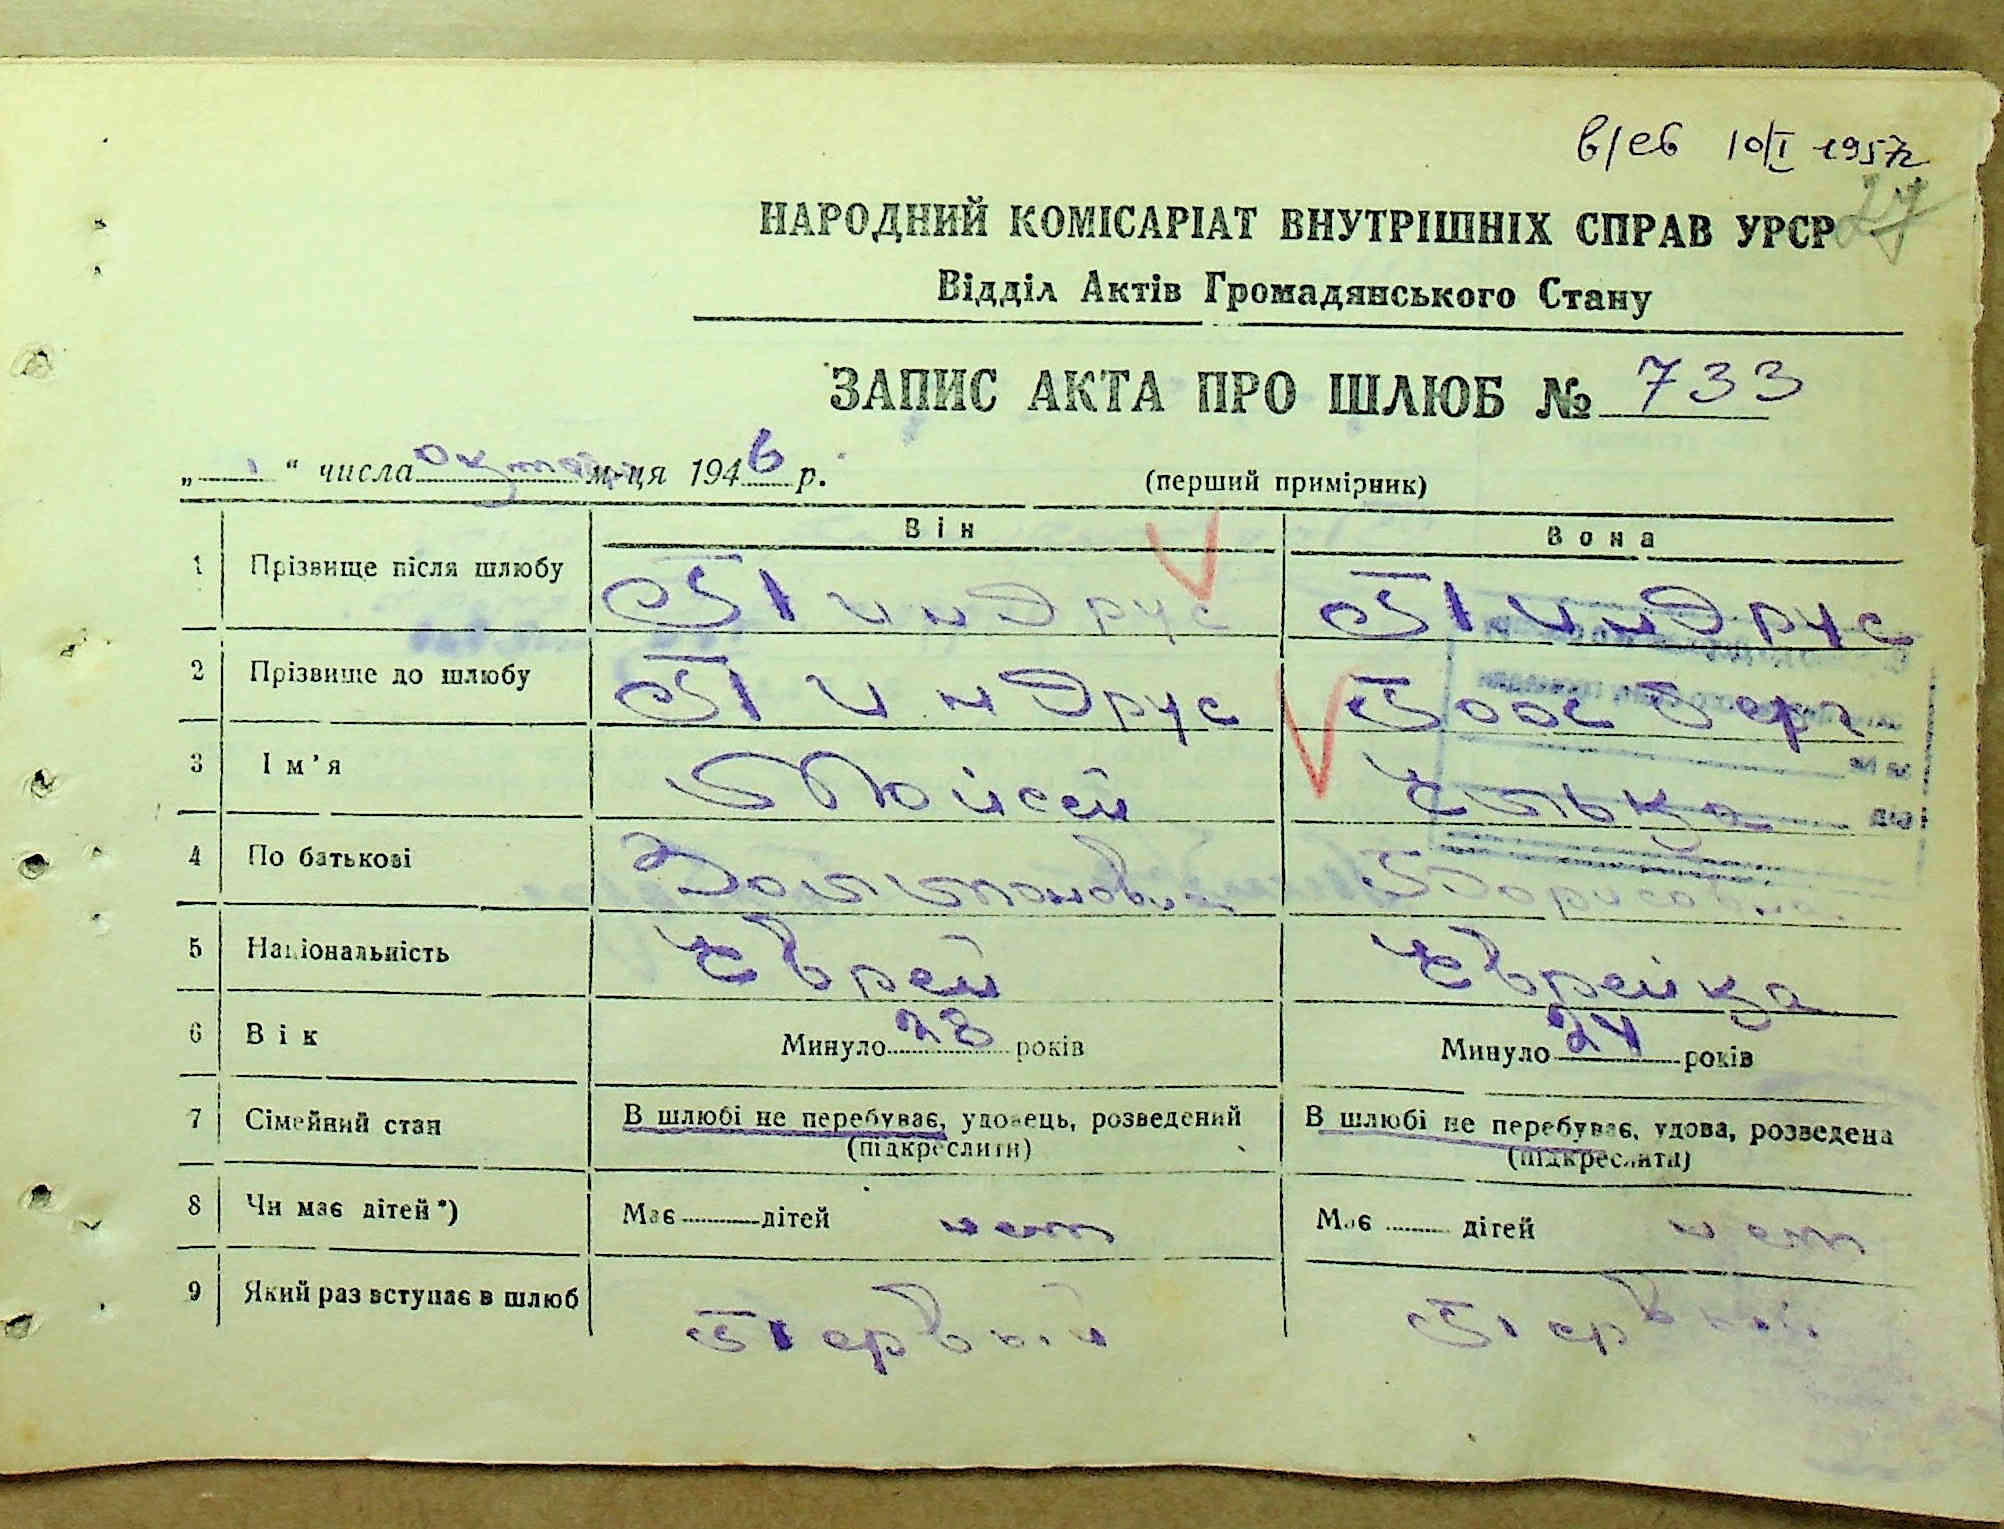 в/св 10/I 1957г
27
НАРОДНИЙ КОМІСАРІАТ ВНУТРІШНІХ СПРАВ УРСР
Відділ Актів Громадянського Стану
ЗАПИС АКТА ПРО ШЛЮБ № 733
„ 1 “ числа октября м-ця 1946 р. (перший примірник)
Він Вона
1 Прізвище після шлюбу Пиндрус Пиндрус
2 Прізвище до шлюбу Пиндрус
3 Ім’я Мойсей Елька
4 По батькові Залманович Борисовна
5 Національність Еврей Еврейка
6 Вік Минуло 28 років Минуло 24 років
7 Сімейний стан В шлюбі не перебуває, удовець, розведений В шлюбі не перебуває, удова, розведена
(підкреслити) (підкреслити)
8 Чи має дітей*) Має дітей нет Має дітей нет
9 Який раз вступає в шлюб Первый Первый